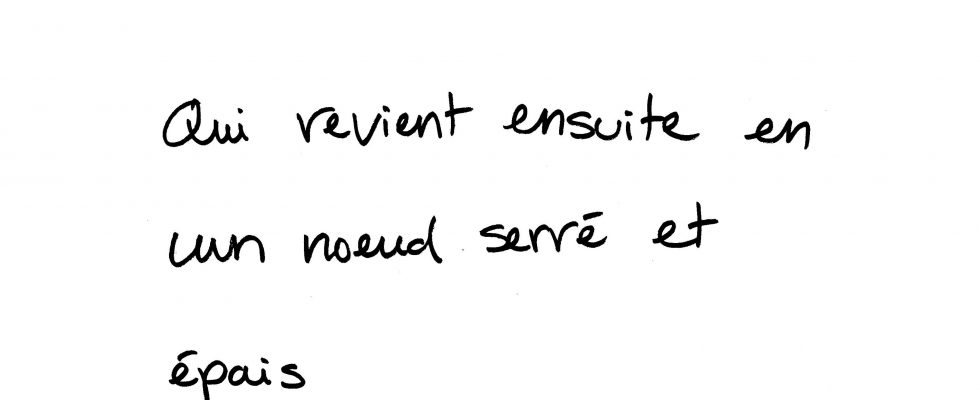 Qui revient ensuite en
un noeud serré et
épais